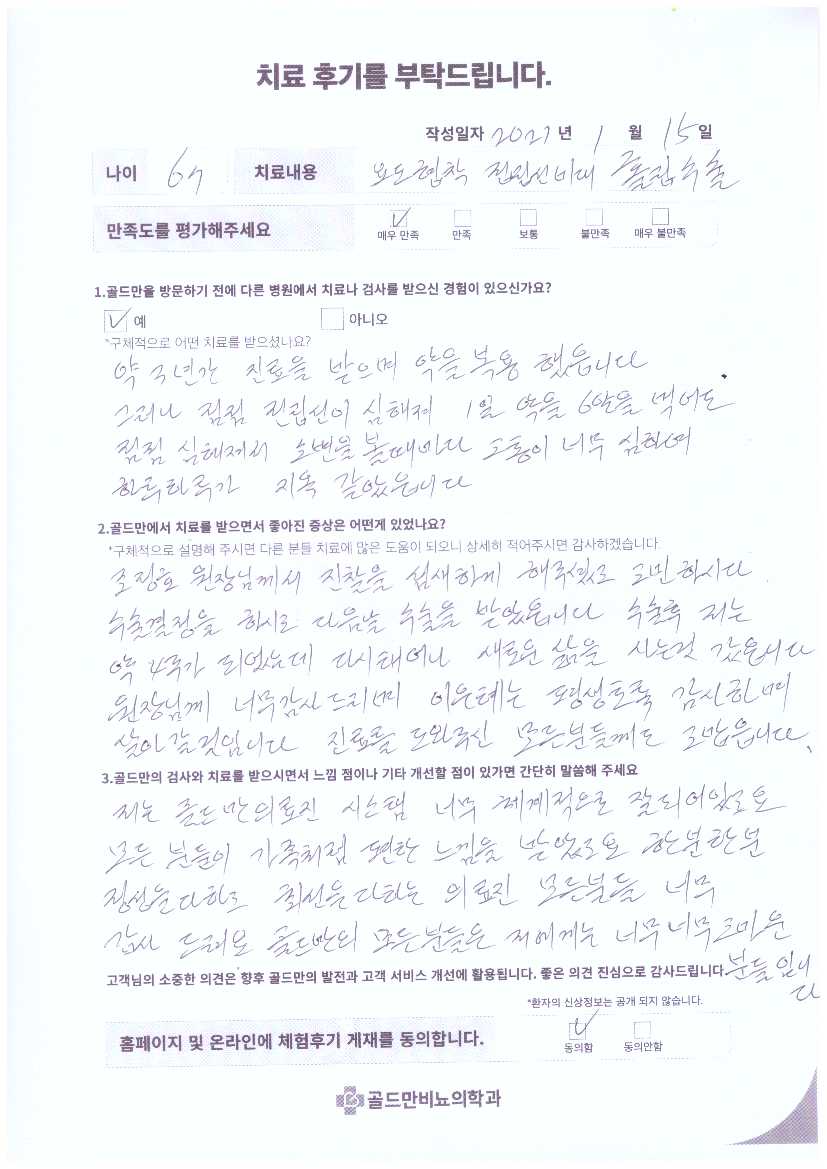 치료 후기를 부탁드립니다.
작성일자 2021 년 1 월 15 일
나이 67 치료내용 요도협착 전립선비대 홀렙수술
만족도를 평가해주세요 매우 만족 만족 보통 불만족 매우 불만족
1.골드만을 방문하기 전에 다른 병원에서 치료나 검사를 받으신 경험이 있으신가요?
예 아니오
*구체적으로 어떤 치료를 받으셨나요?
약 3년간 진료을 받으며 약을 복용 했읍니다
그러나 점점 전립선이 심해져 1일 약을 6알을 먹어도
점점 심해져서 소변을 볼때마다 고통이 너무 심하여
하루하루가 지옥 같았읍니다
2.골드만에서 치료를 받으면서 좋아진 증상은 어떤게 있었나요?
*구체적으로 설명해 주시면 다른 분들 치료에 많은 도움이 되오니 상세히 적어주시면 감사하겠습니다.
조정호 원장님께서 진찰을 섬세하게 해주셨고 고민하시다
수술결정을 하시고 다음날 수술을 받았읍니다 수술후 저는
약 4주가 되었는데 다시태어나 새로운 삶을 사는것 같읍니다
원장님께 너무감사드리며 이은혜는 평생토록 감사하며
살아갈것입니다 진료를 도와주신 모든분들께도 고맙읍니다.
3.골드만의 검사와 치료를 받으시면서 느낌 점이나 기타 개선할 점이 있가면 간단히 말씀해 주세요
저는 골드만의료진 시스템 너무 체계적으로 잘되어있고요
모든 분들이 가족처럼 편한 느낌을 받았고요 한분한분
정성을다하고 최선을다하는 의료진 모든분들 너무
감사 드려요 골드만의 모든분들은 저에게는 너무너무고마운
고객님의 소중한 의견은 향후 골드만의 발전과 고객 서비스 개선에 활용됩니다. 좋은 의견 진심으로 감사드립니다. 분들입니
다
*환자의 신상정보는 공개 되지 않습니다.
홈페이지 및 온라인에 체험후기 게재를 동의합니다. 동의함 동의안함
골드만비뇨의학과